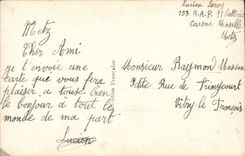 Lucien Leroy
153 R.A.P. Batterie
Metz
Metz
Cher Ami
je t'envoie une
carte que vous fera
plaisir, a tous bien
le bonjour a tout le
monde de ma part
Lucien
Monsieur Raymond Masson
Petite Rue de Frincourt
Vitry le François